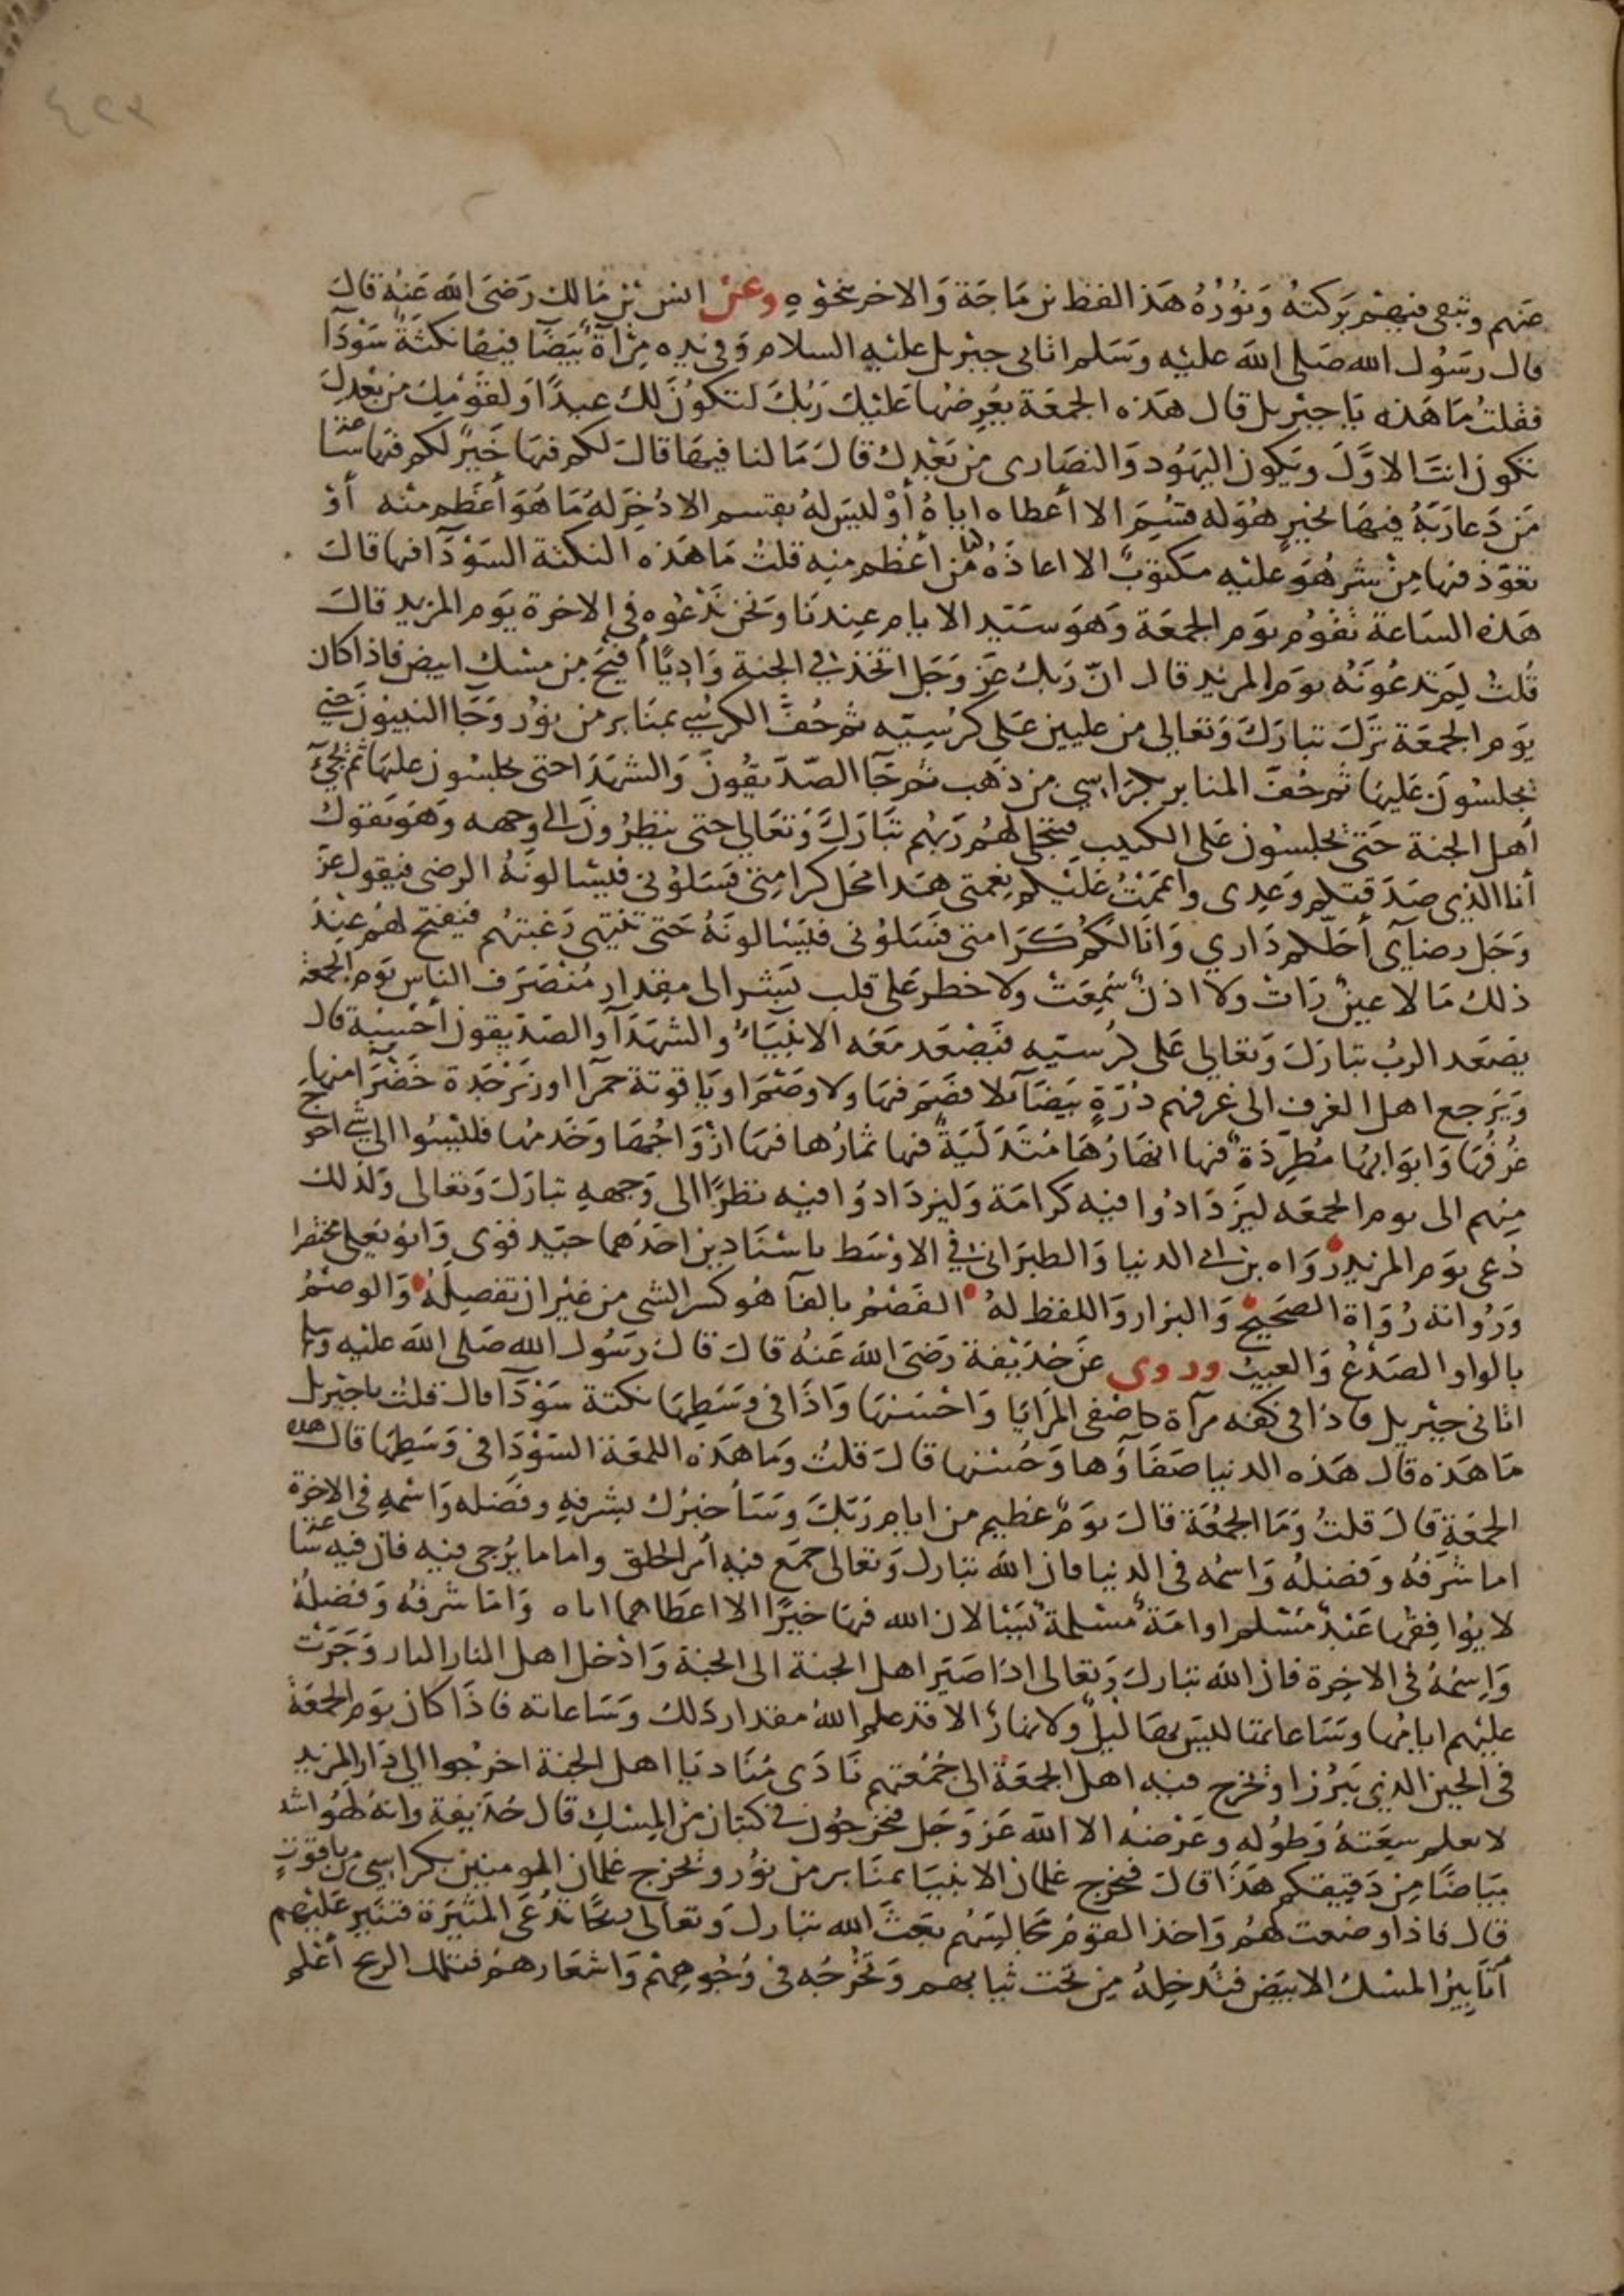 ٤٢٣
عنهم وتبقى فيهم بَركتهُ وَنُوُرُهُ هَذ الفظ بن مَاجَة وَالاخر بنحوِهِ وعن انس بْن مَالك رَضىَ الله عَنهُ قالَ
قال رسَوُل الله صَلى اللهَ عليْه وسَلم اتانى جبْريل عليْه السلام وَفى يده مِرْآةٌ بَيَضَآ فيهَا نكتَةٌ سَوْدَآ
فقلتُ مَا هَذه يَا جبْريل قال هَذه الجمعَة يعُرضهَا عَليْكَ رَبُكَ لتكوُنَ لك عيدًا وَلقوَمْكَ من بَعْدِكَ
تكون انتَ الاوَّلَ ويَكون اليَهوُد وَالنصَارى من بَعْدك قالَ مَا لنا فيهَا قالَ لكم فيهَا خَيرٌ لكم فيهَا ساعة
مَن دَعا رَبَهُ فيهَا بخيرٍ هُوَ له قسُمَ الا أعطاه اياهُ أوْ ليسَ لهُ بقسم الا دُخِرَ لهُ مَا هُوَ أعَظم منْه أوْ
تعَوّذ فيها مِنْ شر هُوَ عليْه مَكتوَبٌ الا اعاذهُ من أعْظم منه قلتُ مَا هَذه النكتة السَوْدَآ فيها قالَ
هَذه السَاعة تقوُم يَوم الجمعَة وَهوَ سَيَد الايام عِندنَا وَنحن نَدْعُوه في الاخرة يوَم المزيد قالَ
قُلتُ لِمَ تدعُونَهُ يوَم المزيد قال انّ رَبكَ عَز وَجَل اتخذ في الجنة وَادِيًا أفيَحَ من مسْك ابيض فاذا كان
يوَم الجمعَة نزَلَ تبارَكَ وَتعَالى من عليين عَلى كرُسِيّه ثم حُفَّ الكرُسي بمنَابر من نوُر وَجَا النبيونَ حتى
يجلسوُنَ عَليهَا ثم حُفَّ المنابر بكرَاسِي من ذهَب ثم جَآ الصّدّيقُونَ وَالشهَدَا حتى يجلسُون عليهَا ثم يجئ
أهل الجنة حَتى يجلسُون عَلى الكثيب فيتجلى لهُم رَبهُم تبَاركَ وَتعَالى حتى ينظرُونَ الى وجهه وهَوَ يَقوُل
أنا الذي صَدَقتكم وَعدِى وأتممَتُ عَليْكم نِعمتى هَذا محَل كرامَتى فسَلوُنى فيسْالونَهُ الرضى فيقول عزَ
وَجَل رضاىَ أحَلّكم دَاري وَانَا لكُمْ كَرَامتى فسَلوُنى فيَسْالونهُ حَتى تنتهى رَغبتهُم فيَفتح لهُم عنْدَ
ذلك مَا لا عينٌ رَاتْ ولا اذنٌ سُمِعَتْ ولا خطر عَلى قلب بَشر الى مِقدار مُنْصَرَف الناس يوَم الجمعَة
يصَعَد الربُ تبارَكَ وَتعَالى عَلى كُرسيّه فيَصْعَد مَعَه الانبيَاء وَالشهَدَآ وَالصَدّيقون أحْسِبُه قال
وَيَرجع اهل الغرف الى غرفهم دُرّةٍ بَيضَآ لا فصَم فيهَا ولا وصَمَ او يَاقوتة حمرَآ او زبَرْجَدة خَضْرَا منها
غرُفُهَا وَابوَابهَا مُطرِدَة فيها انهَارُهَا مُتَدَليَة فيها ثمارُها فيهَا ازْوَاجُهَا وَخَدمُها فليْسُوا الى شئ احوج
مِنهم الى يوم الجمعَه ليزَدَادُوا فيه كرَامَة وَليزدَادوُا فيه نظرًا الى وَجهِهِ تبارَكَ وَتعالى وَلذلك
دُعى يوَم المزيد رَوَاه بن ابي الدنيا وَالطبرَانى في الاوْسَط باسْنَادين احَدُهما جيّد قوَى وَابوُ يَعلى مختصَرا
وَرُوَاته رُوَاة الصَحَيحْ وَالبزار وَاللفظ لهُ الفصَمُ بالفآ هُوَ كسر الشى من غيْر ان تفصِلهُ وَالوصَمُ
بالواو الصَدْعُ وَالعيبُ وروى عَن حُذيْفة رَضىَ اللهَ عَنهُ قالَ قال رَسوُل الله صَلى اللهَ عليْه وَسلم
اتانى جبْريل فاذا فى كفه مرآة كاصْفى المَرَايَا وَاحْسَنهَا وَاذَا فى وَسَطِهَا نكتة سَوْدَآ قال قلتُ يا جبْريل
مَا هَذه قال هَذه الدنيا صَفَاوُها وَحُسْنها قالَ قلتُ وَما هَذه اللمعَة السَوْدَا فى وَسَطِهَا قال هذه
الجمعَة قالَ قلتُ وَمَا الجمُعَة قالَ يوَمٌ عظيم من ايام رَبّكَ وسَأخبرُك بشرفِهِ وفضَله وَاسْمهِ فى الاخرة
اما شرَفهُ وَفضلهُ وَاسمُه فى الدنيا فان اللهَ تبارك وَتعالى جمَع فيه أمْر الخلق واما ما يُرجى فيه فان فيه ساعة
لا يُوافقهَا عَبْدٌ مسْلم او امَة مسْلمة يَسْالان الله فيهَا خيرًا الا اعطَاهما اياه وَامَا شرَفهُ وَفضلهُ
وَاسِمُهُ فى الاخِرة فان اللهَ تبارك وَتعالى اذا صَيَر اهل الجنة الى الجنة وَادْخل اهل النار النار وَجَرَتْ
عليْهم ايامُها وسَاعاتها ليسَ بهَا ليلٌ ولا نهارٌ الا قد علم اللهُ مقدار ذلك وسَاعاته فاذَا كان يوَم الجمعَة
فى الحين الذى يَبرُز او يخرج فيه اهل الجمعَة الى جُمُعتهم نَادَى مُنَاد يَا اهل الجنة اخرُجوا الى دَار المزيد
لا يعلم سِعَتهُ وَطوُله وعَرْضهُ الا اللهَ عَزوَجَل فيخرجُون في كثبان من المِسْك قال حُذيفة وانهُ لهُوَ اشد
بيَاضًا مِن دَقيقكم هَذَا قالَ فيخرج غلمان الانبيَا بمنَابر من نوُر ويخرج غلمان المومنين بكراسِى من ياقوُتٍ
قال فاذا وضعت لهُم وَاخذ القومُ مجَالسَهُم بَعَثَ الله تبارك وَتعالى ريحًا تدْعَى المثيَرَة فتثير عَليْهم
أثَابيرَ المسْك الابيَض فتدُخِلهُ مِن تحت ثيابهم وَتخرُجُه فى وُجُوهِهمْ وَاشعَارهمُ فتلك الريح أعْلم